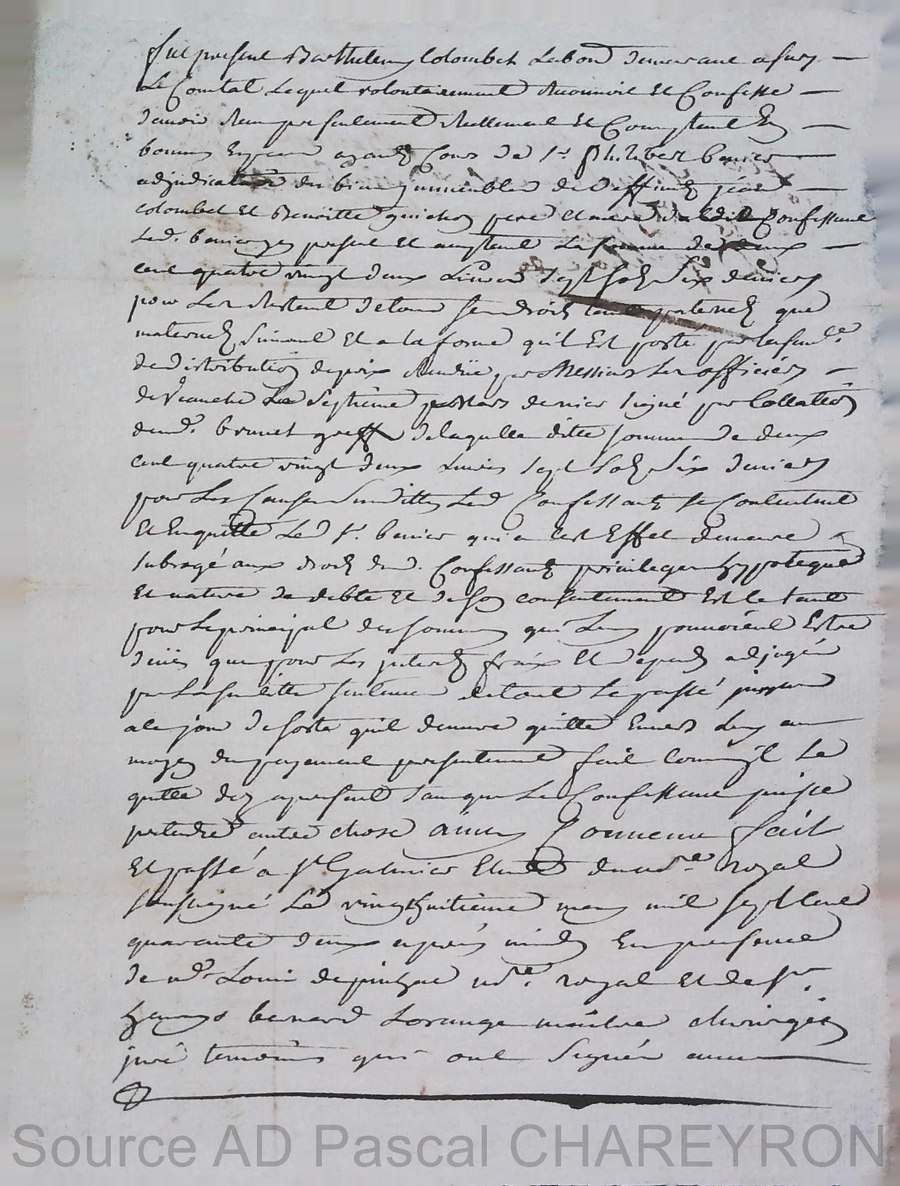 fut present Barthelemy Colombet Labour demeurant a Sury
Le Comtal Lequel volontairement Reconnoit Et Confesse
d'avoir Reçu presentement Reellement Et Comptant En
bonnes Especes ayant Cours de Sr. Philibert banier
adjudicataire des biens immeubles de deffunts
Colombet Et Benoitte pere et mere dudit Confessant
Led. banier present Et acceptant La somme de deux
cent quatre vingt deux Livres sept sols six deniers
pour Le Restant de tous ses droits tant paternels que
maternels Suivant Et a la forme qu'il Est porté par la sent.e
de distribution de prix Rendüe par Messieurs Les officiers
de La Septieme mars dernier signé par Collation
dud. brunet greff. de laquelle ditte somme de deux
cent quatre vingt deux Livres sept sols six deniers
pour Les Causes Susdittes Led. Confessant se Contentant
Et En quitte Led. Sr. banier qui a cest Effet demeure
subrogé aux droits dud. Confessant privileges hypoteques
Et nature de debte Et de son consentement Et le tout
pour Le principal des sommes qui Luy pouvoient Estre
düës que pour Les interets fraix Et depens adjugés
par La susditte sentence de tout Le passé jusques
a ce jour de sorte qu'il demeure quitte Envers Luy au
moyen du payement presentement fait comm'il Le
quitte dez apresent sans que Le Confessant puisse
pretendre autre chose ainsy Convenu fait
Et passé a St. Galmier Etude du no.re Royal
soussigné Le vingthuitieme may mil sept cent
quarante deux apres midy En presence
de Me. Louis depinhac no.re Royal Et de Sr.
benard Lorange maitre chirurgien
juré temoins qui ont signés avec
Source AD Pascal CHAREYRON